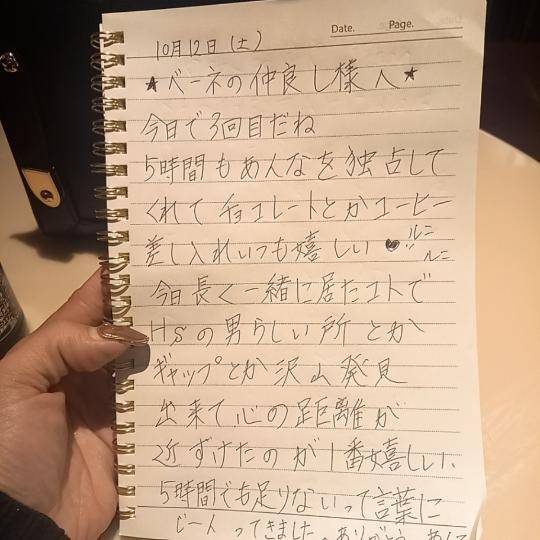 Date. Page.
10月12日(土)
★ベーネの仲良し様へ★
今日で3回目だね
5時間もあんなを独占して
くれてチョコレートとかコーヒー
差し入れいつも嬉しい♥ルンルン
今日長く一緒に居たコトで
Hsの男らしい所とか
ギャップとか沢山発見
出来て心の距離が
近ずけたのが1番嬉しい、
5時間でも足りないって言葉に
じーんってきました。ありがとう